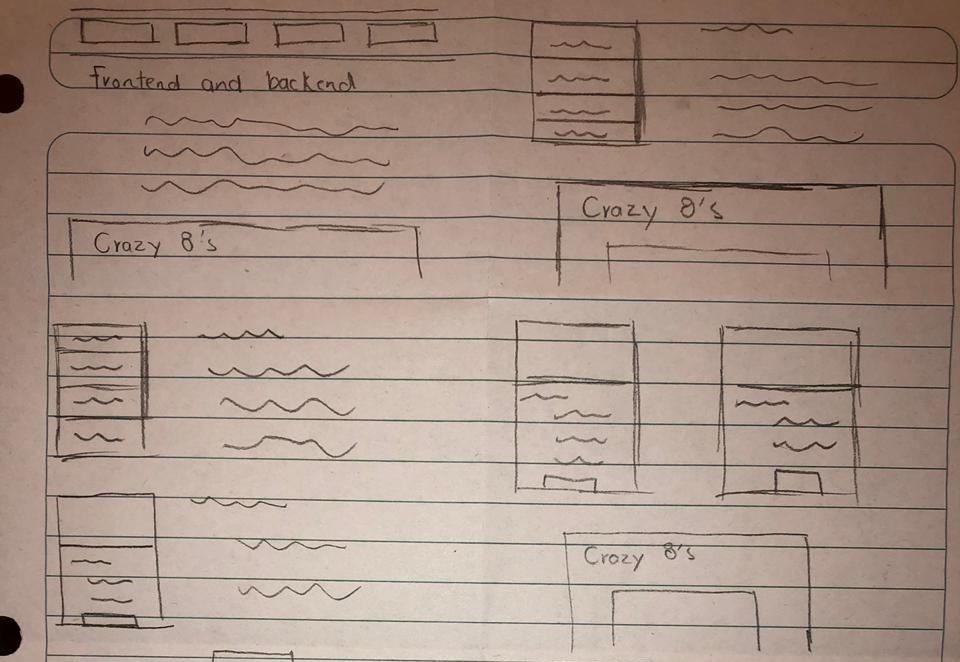 frontend and backend
Crazy 8's
Crazy 8's
Crazy 8's